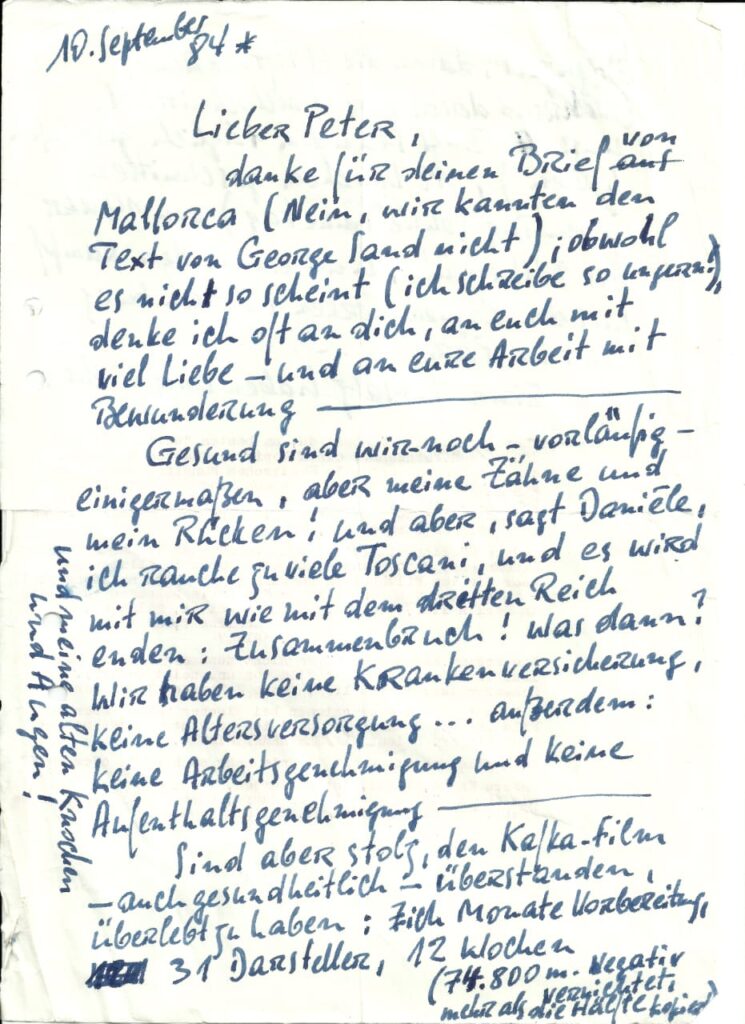 10. September 84 *
Lieber Peter,
danke für deinen Brief auf von
Mallorca (Nein, wir kannten den
Text von George Sand nicht); obwohl
es nicht so scheint (ich schreibe so ungern!),
denke ich oft an dich, an euch mit
viel Liebe – und an eure Arbeit mit
Bewunderung —
Gesund sind wir – noch –, vorläufig –
einigermaßen, aber meine Zähne und
mein Rücken! und aber, sagt Danièle,
ich rauche zu viele Toscani, und es wird
mit mir wie mit dem dritten Reich
enden: Zusammenbruch! Was dann?
Wir haben keine Krankenversicherung,
keine Altersversorgung... außerdem:
keine Arbeitsgenehmigung und keine
Aufenthaltsgenehmigung —
Sind aber stolz, den Kafka-Film
– auch gesundheitlich – überstanden,
überlebt zu haben: Zich Monate Vorbereitung,
31 Darsteller, 12 Wochen
(74.800 m. Negativ
vernichtet,
mehr als die Hälfte kopiert)
und meine alten Knochen
und Augen!